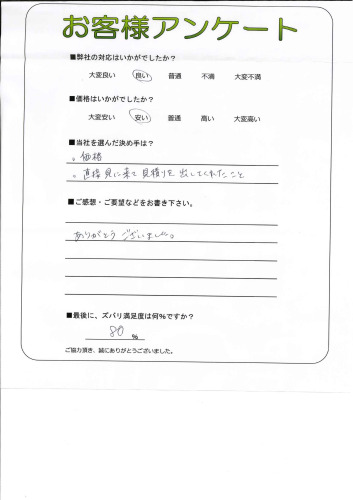 お客様アンケート
■弊社の対応はいかがでしたか?
大変良い 良い 普通 不満 大変不満
■価格はいかがでしたか?
大変安い 安い 普通 高い 大変高い
■当社を選んだ決め手は?
。価格
。直接見に来て見積りを出してくれたこと
■ご感想・ご要望などをお書き下さい。
ありがとうございました。
■最後に、ズバリ満足度は何%ですか?
80 %
ご協力頂き、誠にありがとうございました。